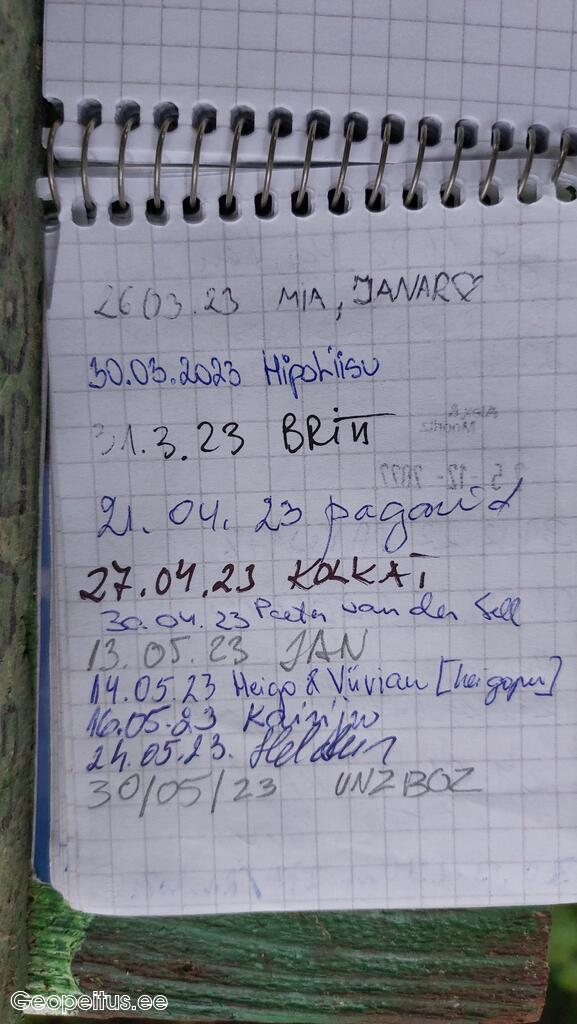 26 03.23 MIA, JANAR♡
30.03.2023 Hipohiisu
31.3.23 BRITT
21.04.23 pagarid
27.04.23 KOLKAT
30.04.23 Peeter van der Sell
13.05.23 JAN
14.05.23 Heigo & Viivian [heigopu]
16.05.23
24.05.23.
30/05/23 UNZBOZ
Geopeitus.ee